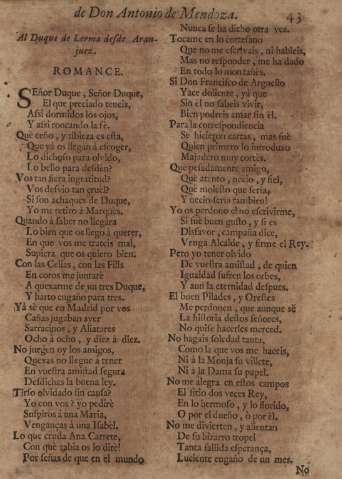 de Don Antonio de Mendoza. 43
Al Duque de Lerma desde Aran-
juez.
ROMANCE.
SEñor Duque, Señor Duque,
El que preciado
Assi dormidos los ojos,
Y assi roncando la fè.
Que ceño, y tibieza es esta,
Que yà os llegan à escoger,
Lo dichoso para olvido,
Lo bello para desden?
Vos tan fiera ingratitud?
Vos desvio tan cruel?
Si son achaques de Duque,
Yo me retiro à Marques.
Quando à saber no llegàra
Lo bien que os llego à querer,
En que vos me trateis mal,
Supiera que os quiero bien.
Con las Celias, con las Filis
En coros me juntarè
A quexarme de un tres Duque,
Y harto engaño para tres.
Yà sè que en Madrid por vos
Cañas jugaban ayer
Sarracinos, y Aliatares
Ocho à ocho, y diez à diez.
No juegen oy los amigos,
Quexas no llegue à tener
En vuestra amistad segura
Desdichas la buena ley.
Tirso olvidado sin causa?
Yo con vos? yo pedirè
Suspiros à una Maria,
Venganças à una Isabel.
Lo que cruda Ana Carrete,
Con què rabia os lo dirè!
Por señas de que en el mundo
Nunca se ha dicho otra vez.
Tocame en lo cortesano
Que no me escrivais, ni hableis,
Mas no responder, me ha dado
En todo lo montañès.
Si Don Francisco de Arguello
Yace doliente, yà que
Sin èl no sabeis vivir,
Bien podeis amar sin èl.
Para la correspondencia
Se hizieron cartas, mas fuè
Quien primero lo introduxo
Majadero muy cortes.
Que pesadamente amigo,
Què atento, necio, y fiel,
Què molesto que seria,
Y necio seria tambien!
Yo os perdono el no escrivirme,
Si fuè buen gusto, y si es
Disfavor, campaña dice,
Venga Alcalde, y firme el Rey.
Pero yo tener olvido
De vuestra amistad, de quien
Igualdad sufren los orbes,
Y aun la eternidad despues.
El buen Pilades, y Orestes
Me perdonen, que aunque sè
La historia destos señores,
No quise hacerles merced.
No hagais soledad tanta,
Como la que vos me haceis,
Ni à la Monja su villete,
Ni à la Dama su papel.
No me alegra en estos campos
El sitio dos veces Rey,
En lo hermoso, y lo florido,
O por el dueño, ò por èl.
No me divierten, y alientan
De su bizarro tropel
Tanta fallida esperança,
Luciente engaño de un mes.
No